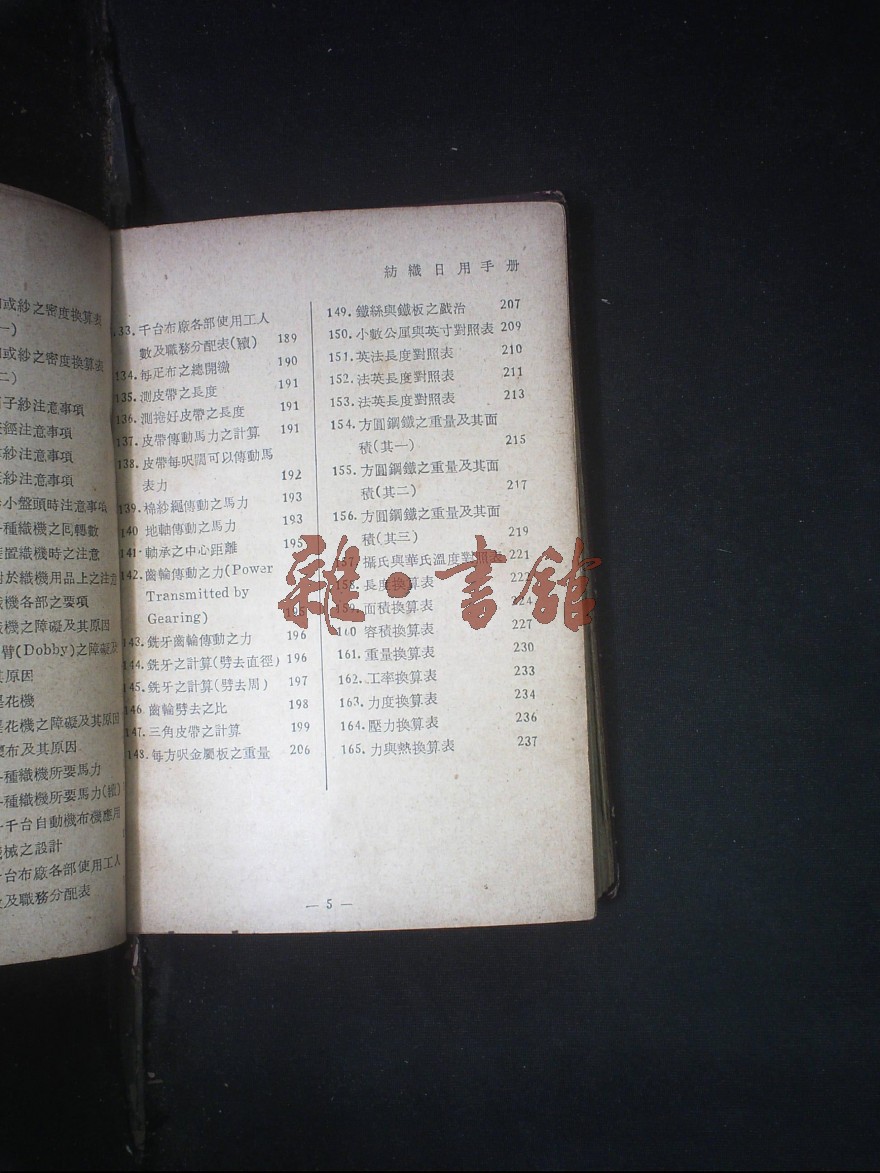 或紗之密度換算表
一)
或紗之密度換算表
二)
子紗注意事項
經注意事項
紗注意事項
紗注意事項
小盤頭時注意事項
種織機之回轉數
置織機時之注意
對於織機用品上之注力
機各部之要項
機之障礙及其原因
臂(Dobby)之障礙及
其原因
花機
花機之障礙及其原因
布及其原因
種織機所要馬力
種織機所要馬力(續)
千台自動機布機應用
械之設計
台布廠各部使用工人
及職務分配表
紡織日用手册
33.千台布廠各部使用工人
數及職務分配表(續) 189
134.每疋布之總開繳 190
135.測皮帶之長度 191
136.測捲好皮帶之長度 191
137.皮帶傳動馬力之計算 191
138.皮帶每呎闊可以傳動馬
表力 192
139.棉紗繩傳動之馬力 193
140 地軸傳動之馬力 193
141.軸承之中心距離 195
142.齒輪傳動之力(Power
Transmitted by
Gearing) 195
143.銑牙齒輪傳動之力 196
144.銑牙之計算(劈去直徑) 196
145.銑牙之計算(劈去周) 197
146.齒輪劈去之比 198
147.三角皮帶之計算 199
148.每方呎金屬板之重量 206
149.鐵絲與鐵板之戤治 207
150.小數公厘與英寸對照表 209
151.英法長度對照表 210
152.法英長度對照表 211
153.法英長度對照表 213
154.方圓鋼鐵之重量及其面
積(其一) 215
155.方圓鋼鐵之重量及其面
積(其二) 217
156.方圓鋼鐵之重量及其面
積(其三) 219
157.攝氏與華氏溫度對照表 221
158.長度換算表 222
159.面積換算表 224
160 容積換算表 227
161.重量換算表 230
162.工率換算表 233
163.力度換算表 234
164.壓力換算表 236
165.力與熱換算表 237
— 5 —
雜·書館